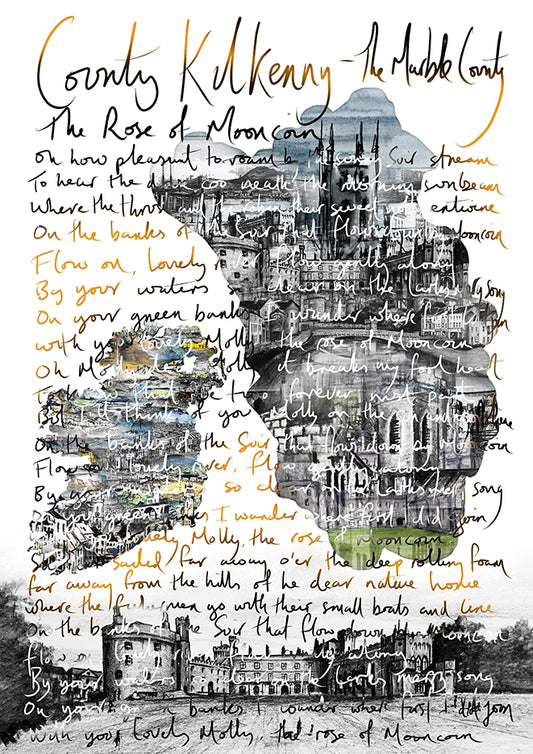 County Kilkenny - The Marble County
The Rose of Mooncoin
Oh how pleasant to roam by the sunny Suir stream
To hear the dove coo neath the morning sunbeam
Where the thrush and robin their sweet notes entwine
On the banks of the Suir that flows down by Mooncoin
Flow on, lovely river flow gently along
By your waters so clear on the larks merry song
On your green banks I wander where first I join
with you lovely Molly the rose of Mooncoin
Oh Molly dear Molly it breaks my fool heart
To that we two forever must part
But I'll think of you Molly on the
On the banks of the Suir that flows down by Mooncoin
Flow on lovely river, flow gently along
By your so clear on the larks merry song
green banks I wander where first I did join
you lovely Molly, the rose of Mooncoin
She sailed far away o'er the deep rolling foam
far away from the hills of he dear native home
where the fishermen go with their small boats and line
On the banks of the Suir that flow down by Mooncoin
flow on, lovely river flow gently along
By your waters so clear on the larks merry song
On your green banks I wander where first I did join
with your lovely Molly, the rose of Mooncoin